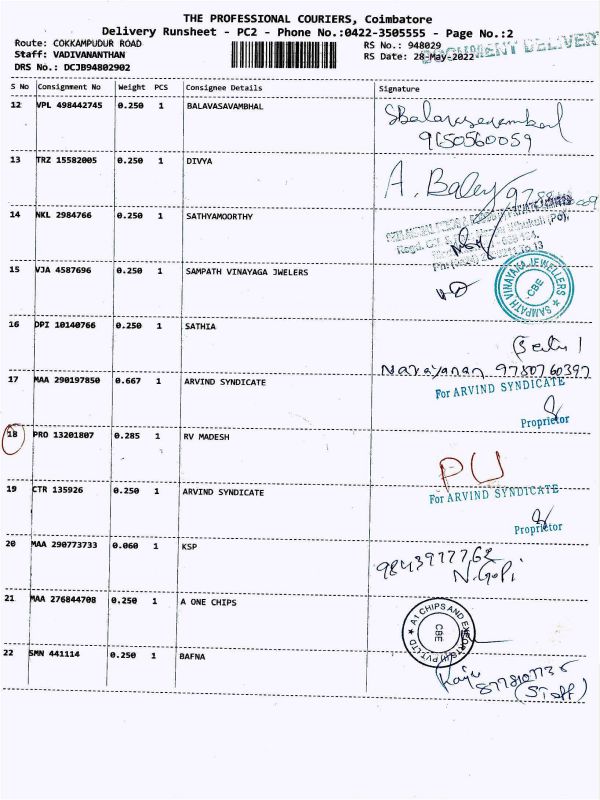 THE PROFESSIONAL COURIERS, Coimbatore
Delivery Runsheet - PC2 - Phone No.:0422-3505555 - Page No.:2
Route: COKKAMPUDUR ROAD RS No.: 948029 DOCUMENT DELIVERY
Staff: VADIVANANTHAN RS Date: 28-May-2022
DRS No.: DCJB94802902
S No Consignment No Weight PCS Consignee Details Signature
12 VPL 498442745 0.250 1 BALAVASAVAMBHAL
9150560059
13 TRZ 15582005 0.250 1 DIVYA
A. Baley
14 NKL 2984766 0.250 1 SATHYAMOORTHY
15 VJA 4587696 0.250 1 SAMPATH VINAYAGA JWELERS
SAMPATH VINAYAKA JEWELLERS
-CBE-
16 DPI 10140766 0.250 1 SATHIA
Narayanan 9780760397
17 MAA 290197850 0.667 1 ARVIND SYNDICATE For ARVIND SYNDICATE
Proprietor
18 PRO 13201807 0.285 1 RV MADESH
PU
19 CTR 135926 0.250 1 ARVIND SYNDICATE For ARVIND SYNDICATE
Proprietor
20 MAA 290773733 0.060 1 KSP
9843977762
N.Gopi
21 MAA 276844708 0.250 1 A ONE CHIPS
A1 CHIPS AND EXPORTS (I) PVT.LTD
CBE
22 SMN 441114 0.250 1 BAFNA
Raju
(Staff)